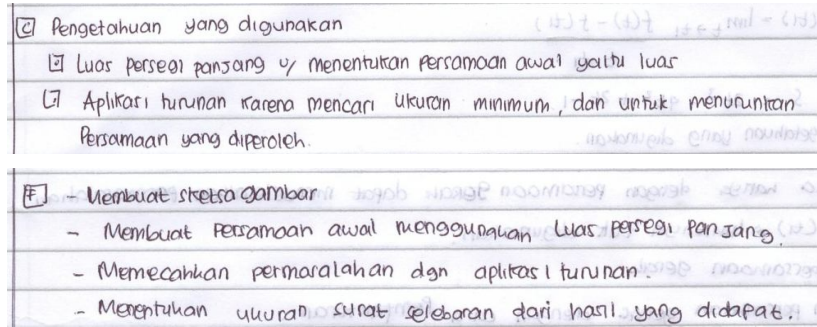 C Pengetahuan yang digunakan
Luas persegi panjang u/ menentukan persamaan awal yaitu luas
Aplikasi turunan karena mencari ukuran minimum, dan untuk menurunkan
Persamaan yang diperoleh.
E - Membuat sketsa gambar
- Membuat persamaan awal menggunakan luas persegi panjang.
- Memecahkan permasalahan dgn aplikasi turunan.
- Menentukan ukuran surat selebaran dari hasil yang didapat.